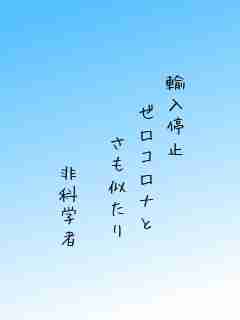 輸入停止
ゼロコロナと
さも似たり
非科学者